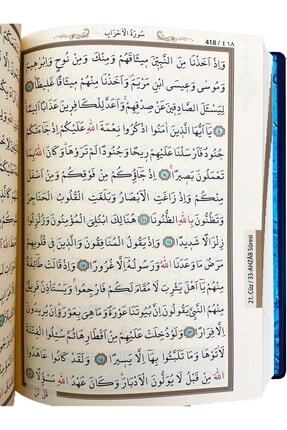 سُورَةُ الْاَحْزَابِ
418 / ٤١٨
وَاِذْ اَخَذْنَا مِنَ النَّبِيّ۪نَ م۪يثَاقَهُمْ وَمِنْكَ وَمِنْ نُوحٍ وَاِبْرٰه۪يمَ
وَمُوسٰى وَع۪يسَى ابْنِ مَرْيَمَ وَاَخَذْنَا مِنْهُمْ م۪يثَاقًا غَل۪يظًا ﴿٧﴾
لِيَسْـَٔلَ الصَّادِق۪ينَ عَنْ صِدْقِهِمْ وَاَعَدَّ لِلْكَافِر۪ينَ عَذَابًا اَل۪يمًا
﴿٨﴾ يَٓا اَيُّهَا الَّذ۪ينَ اٰمَنُوا اذْكُرُوا نِعْمَةَ اللّٰهِ عَلَيْكُمْ اِذْ جَٓاءَتْكُمْ
جُنُودٌ فَاَرْسَلْنَا عَلَيْهِمْ ر۪يحًا وَجُنُودًا لَمْ تَرَوْهَا وَكَانَ اللّٰهُ بِمَا
تَعْمَلُونَ بَص۪يرًا ﴿٩﴾ اِذْ جَٓاؤُ۫كُمْ مِنْ فَوْقِكُمْ وَمِنْ اَسْفَلَ
مِنْكُمْ وَاِذْ زَاغَتِ الْاَبْصَارُ وَبَلَغَتِ الْقُلُوبُ الْحَنَاجِرَ
وَتَظُنُّونَ بِاللّٰهِ الظُّنُونَا ﴿١٠﴾ هُنَالِكَ ابْتُلِيَ الْمُؤْمِنُونَ وَزُلْزِلُوا
زِلْزَالًا شَد۪يدًا ﴿١١﴾ وَاِذْ يَقُولُ الْمُنَافِقُونَ وَالَّذ۪ينَ ف۪ي قُلُوبِهِمْ
مَرَضٌ مَا وَعَدَنَا اللّٰهُ وَرَسُولُهُٓ اِلَّا غُرُورًا ﴿١٢﴾ وَاِذْ قَالَتْ طَٓائِفَةٌ
مِنْهُمْ يَٓا اَهْلَ يَثْرِبَ لَا مُقَامَ لَكُمْ فَارْجِعُوا وَيَسْتَأْذِنُ فَر۪يقٌ
مِنْهُمُ النَّبِيَّ يَقُولُونَ اِنَّ بُيُوتَنَا عَوْرَةٌ وَمَا هِيَ بِعَوْرَةٍ اِنْ يُر۪يدُونَ
اِلَّا فِرَارًا ﴿١٣﴾ وَلَوْ دُخِلَتْ عَلَيْهِمْ مِنْ اَقْطَارِهَا ثُمَّ سُئِلُوا الْفِتْنَةَ
لَاٰتَوْهَا وَمَا تَلَبَّثُوا بِهَٓا اِلَّا يَس۪يرًا ﴿١٤﴾ وَلَقَدْ كَانُوا عَاهَدُوا
اللّٰهَ مِنْ قَبْلُ لَا يُوَلُّونَ الْاَدْبَارَ وَكَانَ عَهْدُ اللّٰهِ مَسْؤُ۫لًا
قُلْ لَنْ
21.Cüz / 33-AHZÂB Sûresi